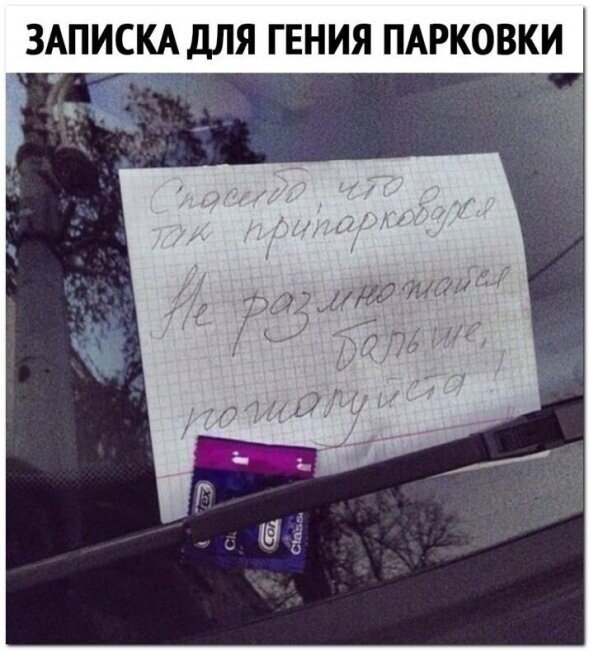 ЗАПИСКА ДЛЯ ГЕНИЯ ПАРКОВКИ
Спасибо, что
так припарковался
Не размножайся
больше,
пожалуйста!
Classic